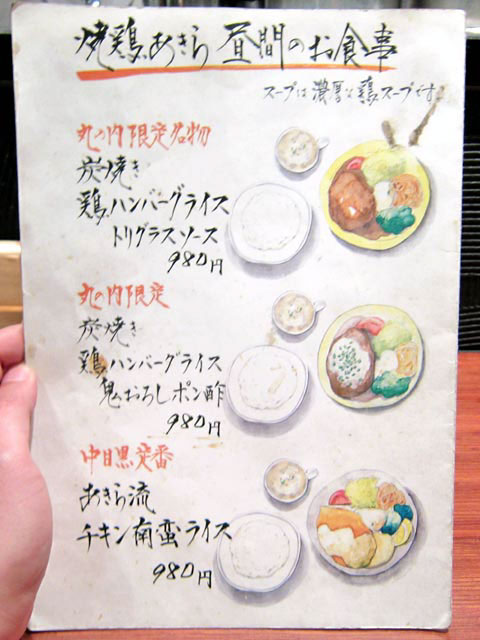 焼鶏あきら 昼間のお食事
スープは濃厚な鶏スープです
丸の内限定名物
炭焼き
鶏ハンバーグライス
トリグラスソース
980円
丸の内限定
炭焼き
鶏ハンバーグライス
鬼おろしポン酢
980円
中目黒定番
あきら流
チキン南蛮ライス
980円